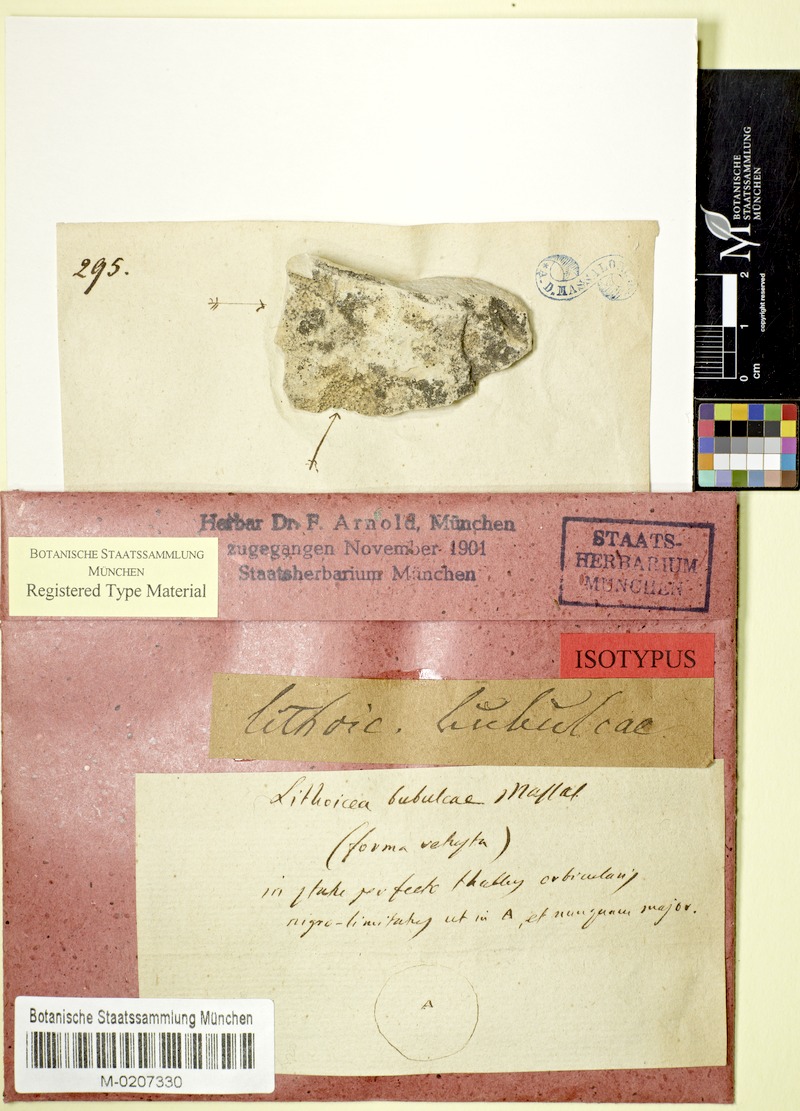 BOTANISCHE
STAATSSAMMLUNG
MÜNCHEN
copyright reserved
0 1 2
cm
295.
D. MASSALO
Herbar Dr. F. Arnold, München
zugegangen November 1901
Staatsherbarium München
STAATS-
HERBARIUM
MÜNCHEN
BOTANISCHE STAATSSAMMLUNG
MÜNCHEN
Registered Type Material
ISOTYPUS
Lithoic. bubulcae
Lithoicea bubulcae Massal
(forma
in perfecto thallus orbicularis
nigro-limitatus ut in A, et nunquam major.
A
Botanische Staatssammlung München
M-0207330